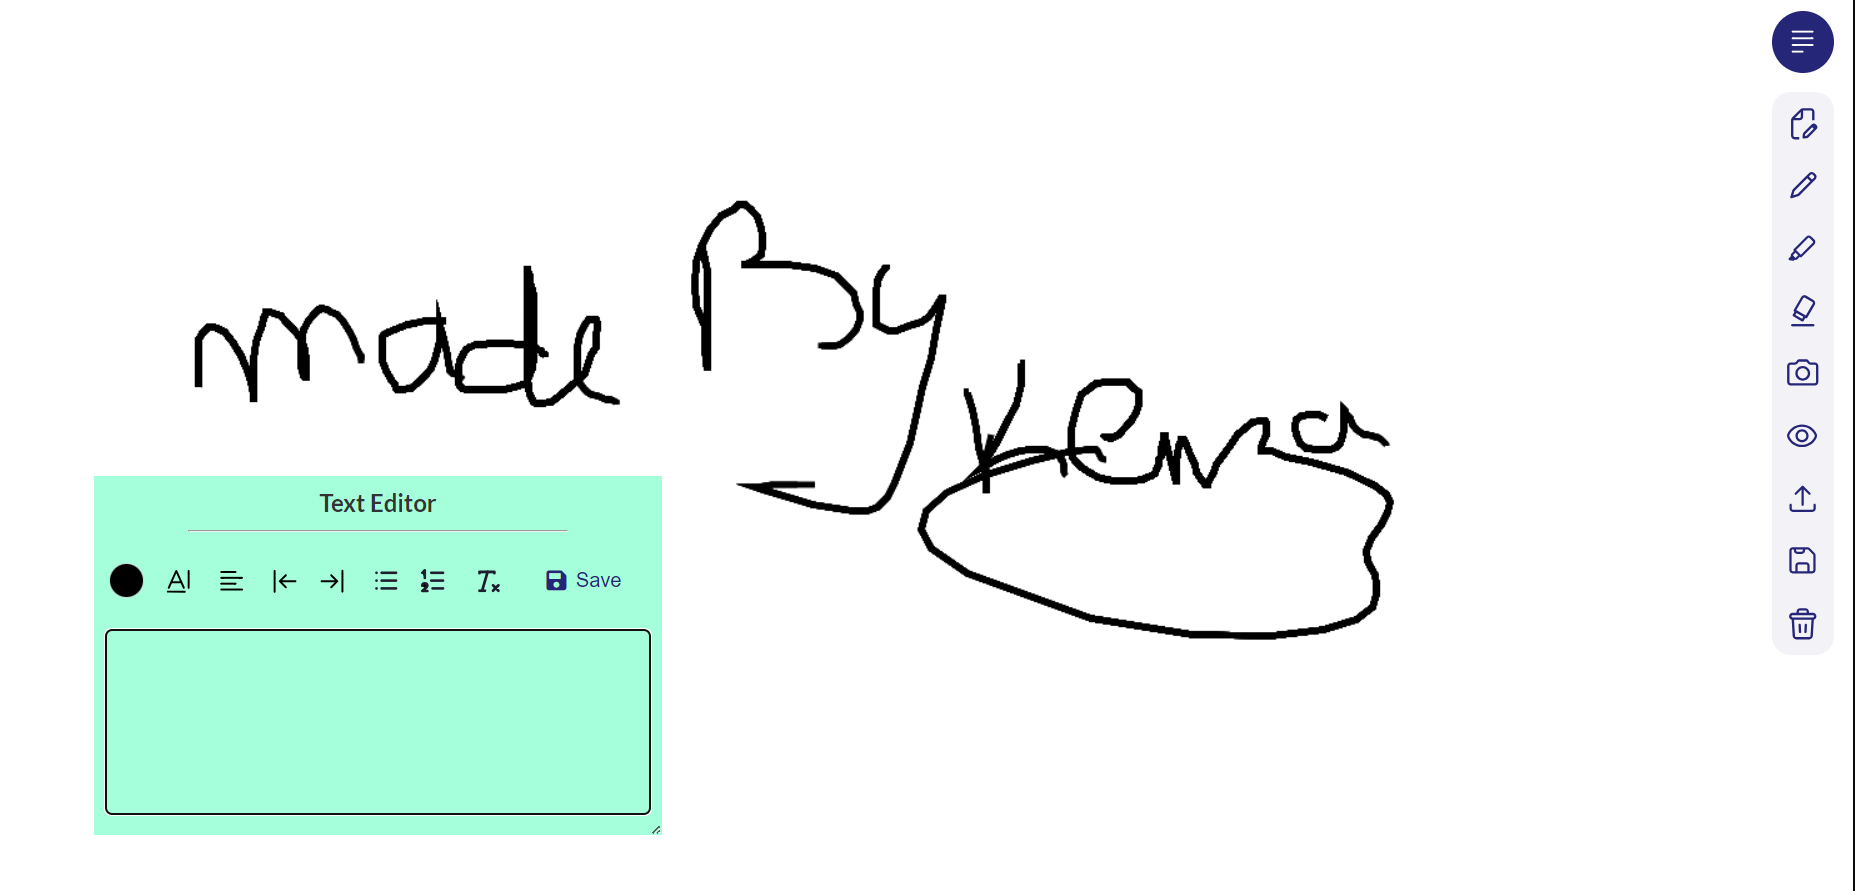 made By
Kenza
Text Editor
Save